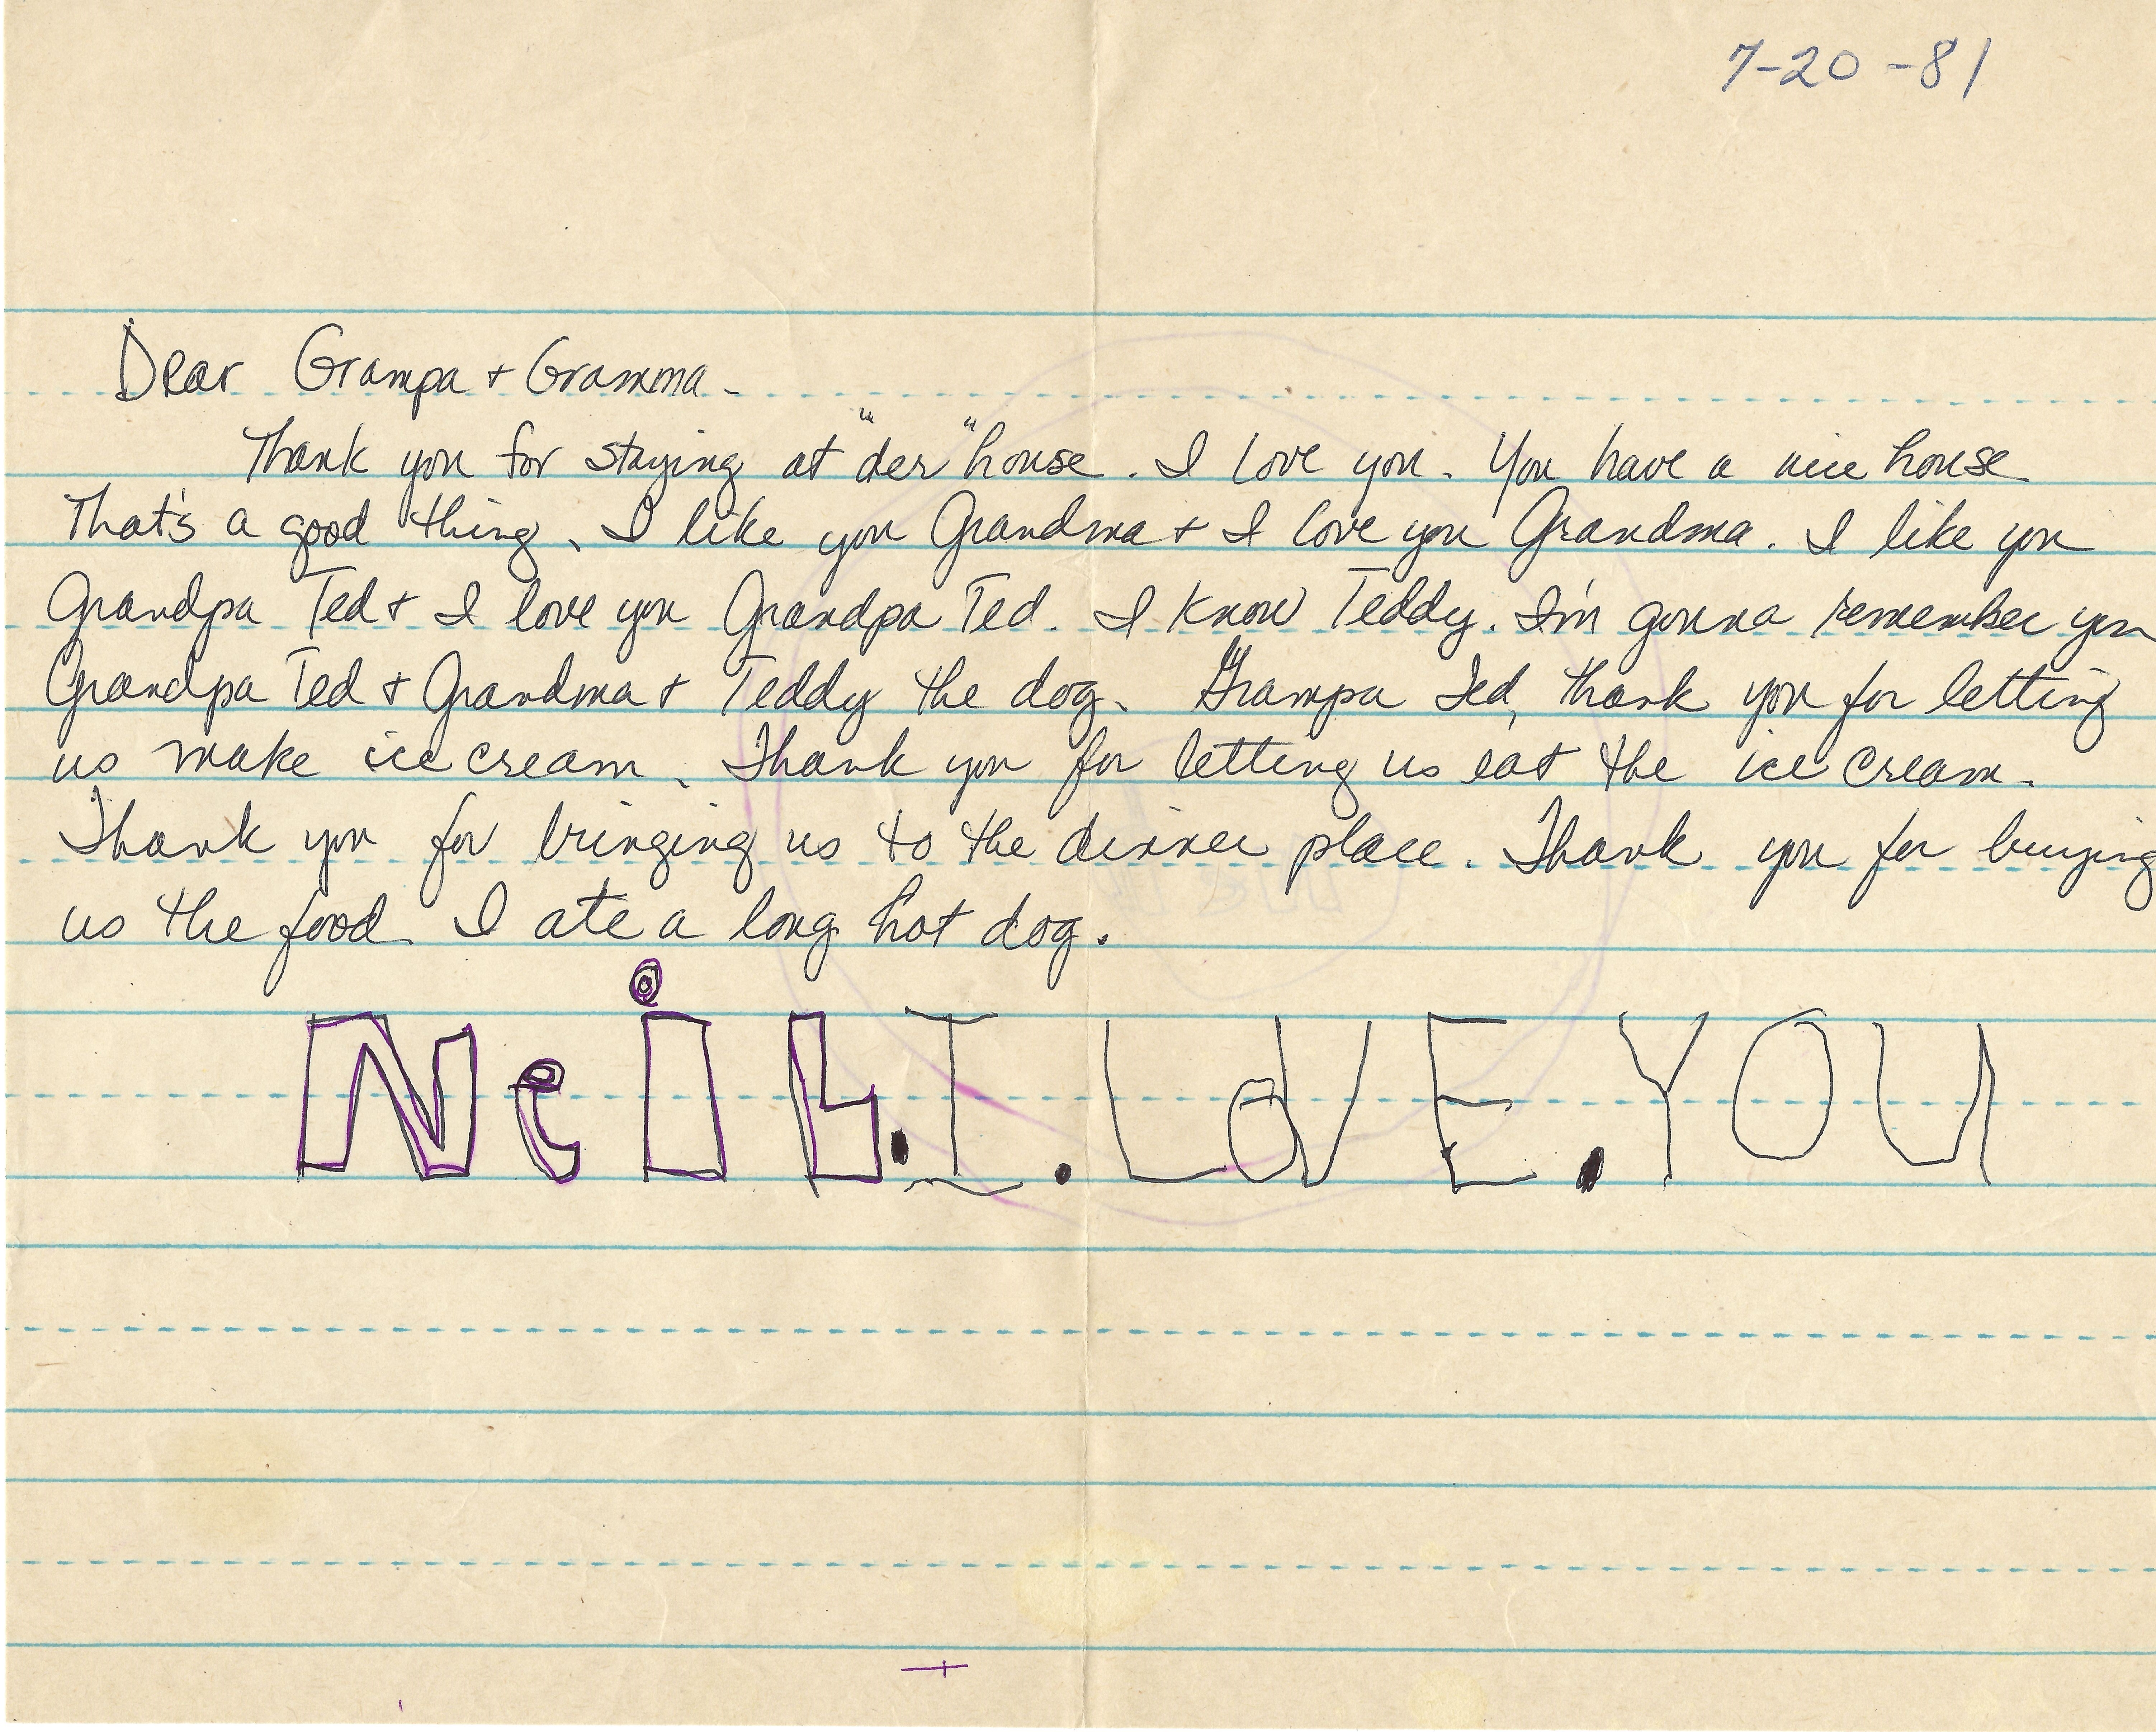 7-20-81
Dear Grampa + Gramma -
Thank you for staying at "der" house. I love you. You have a nice house
That's a good thing. I like you Grandma + I love you Grandma. I like you
Grandpa Ted + I love you Grandpa Ted. I know Teddy. I'm gonna remember you
Grandpa Ted + Grandma + Teddy the dog. Grampa Ted, thank you for letting
us make ice cream. Thank you for letting us eat the ice cream.
Thank you for bringing us to the dinner place. Thank you for buying
us the food. I ate a long hot dog.
NeiL.I.LoVE.YOU